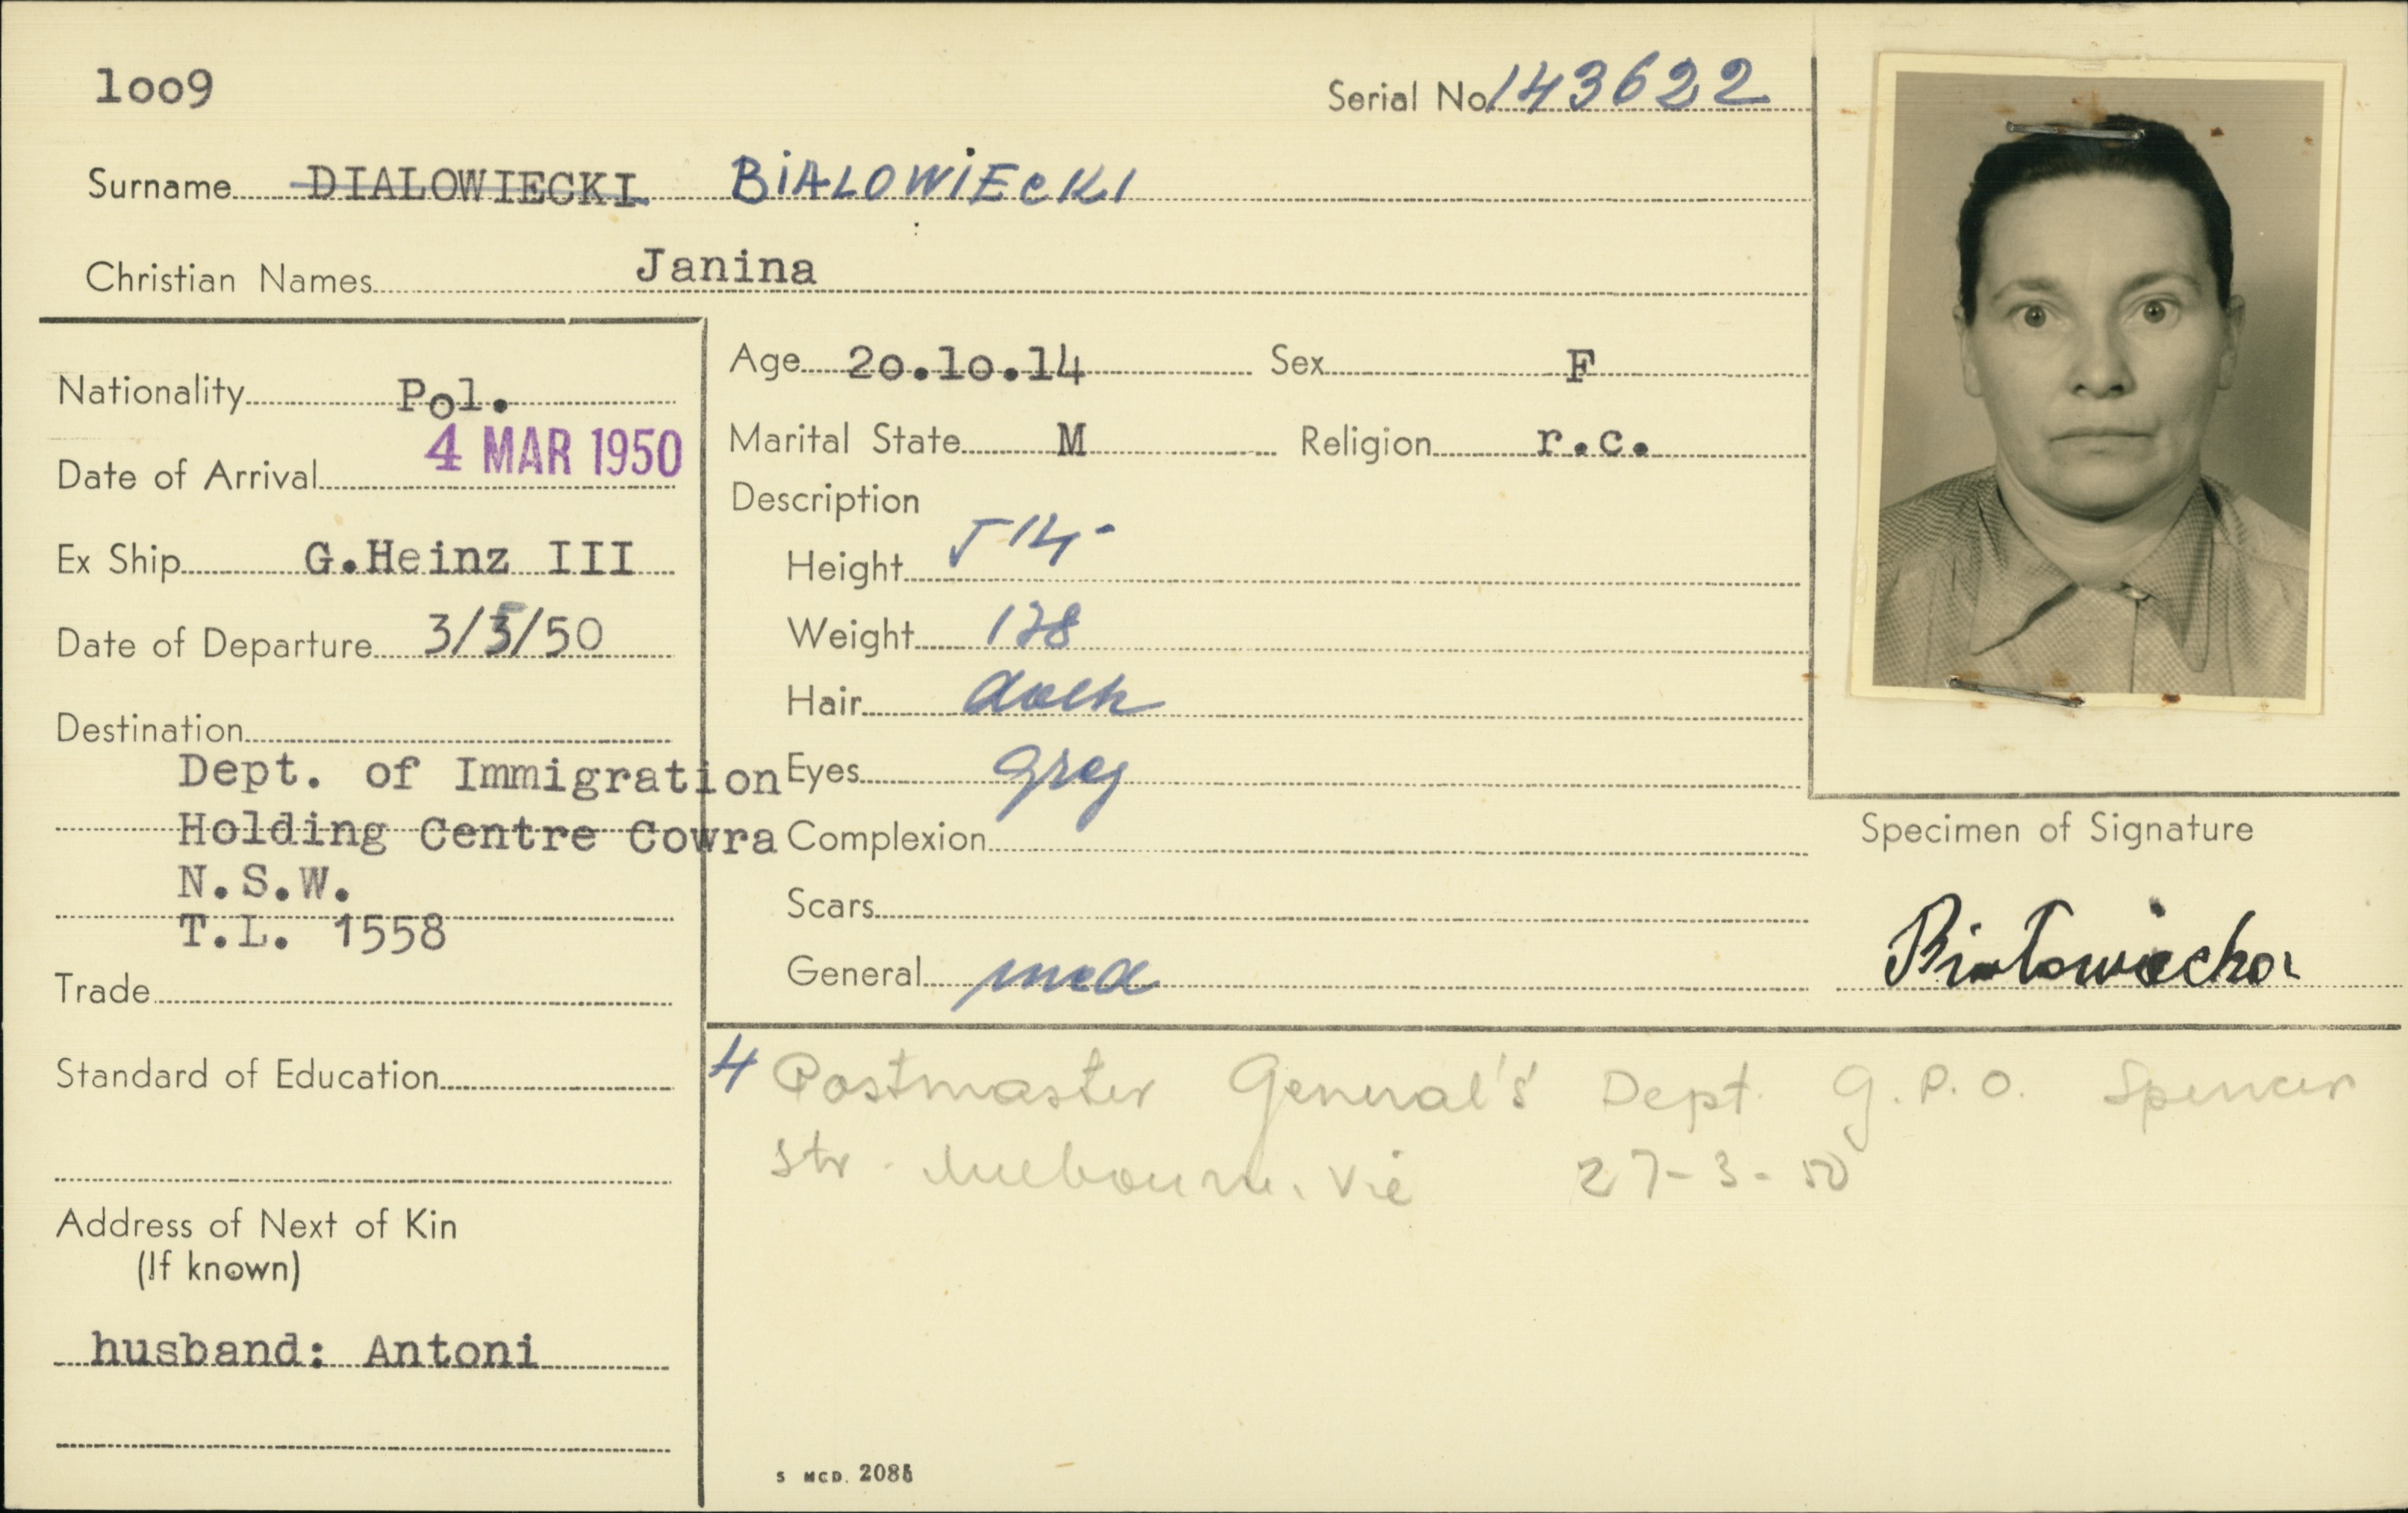 1009
Serial No. 143622
Surname DIALOWIECKI BiALOWiEcKI
Christian Names Janina
Nationality Pol.
Date of Arrival 4 MAR 1950
Ex Ship G.Heinz III
Date of Departure 3/5/50
Destination
Dept. of Immigration
Holding Centre Cowra
N.S.W.
T.L. 1558
Trade
Standard of Education
Address of Next of Kin
(If known)
husband: Antoni
Age 20.10.14 Sex F
Marital State M Religion r.c.
Description
Height
Weight 128
Hair dark
Eyes grey
Complexion
Scars
General med
Specimen of Signature
Białowiecka
4 Postmaster General's Dept. G.P.O. Spencer
Str. Melbourne. Vic 27-3-50
S MCD. 2086